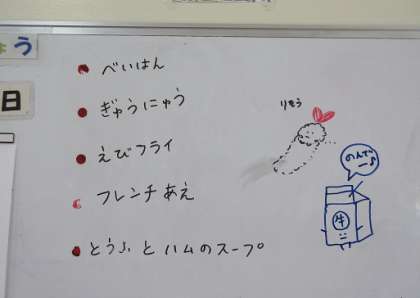 ょう
日
べいはん
ぎゅうにゅう
えびフライ
フレンチあえ
とうふとハムのスープ
のんでー♪
牛